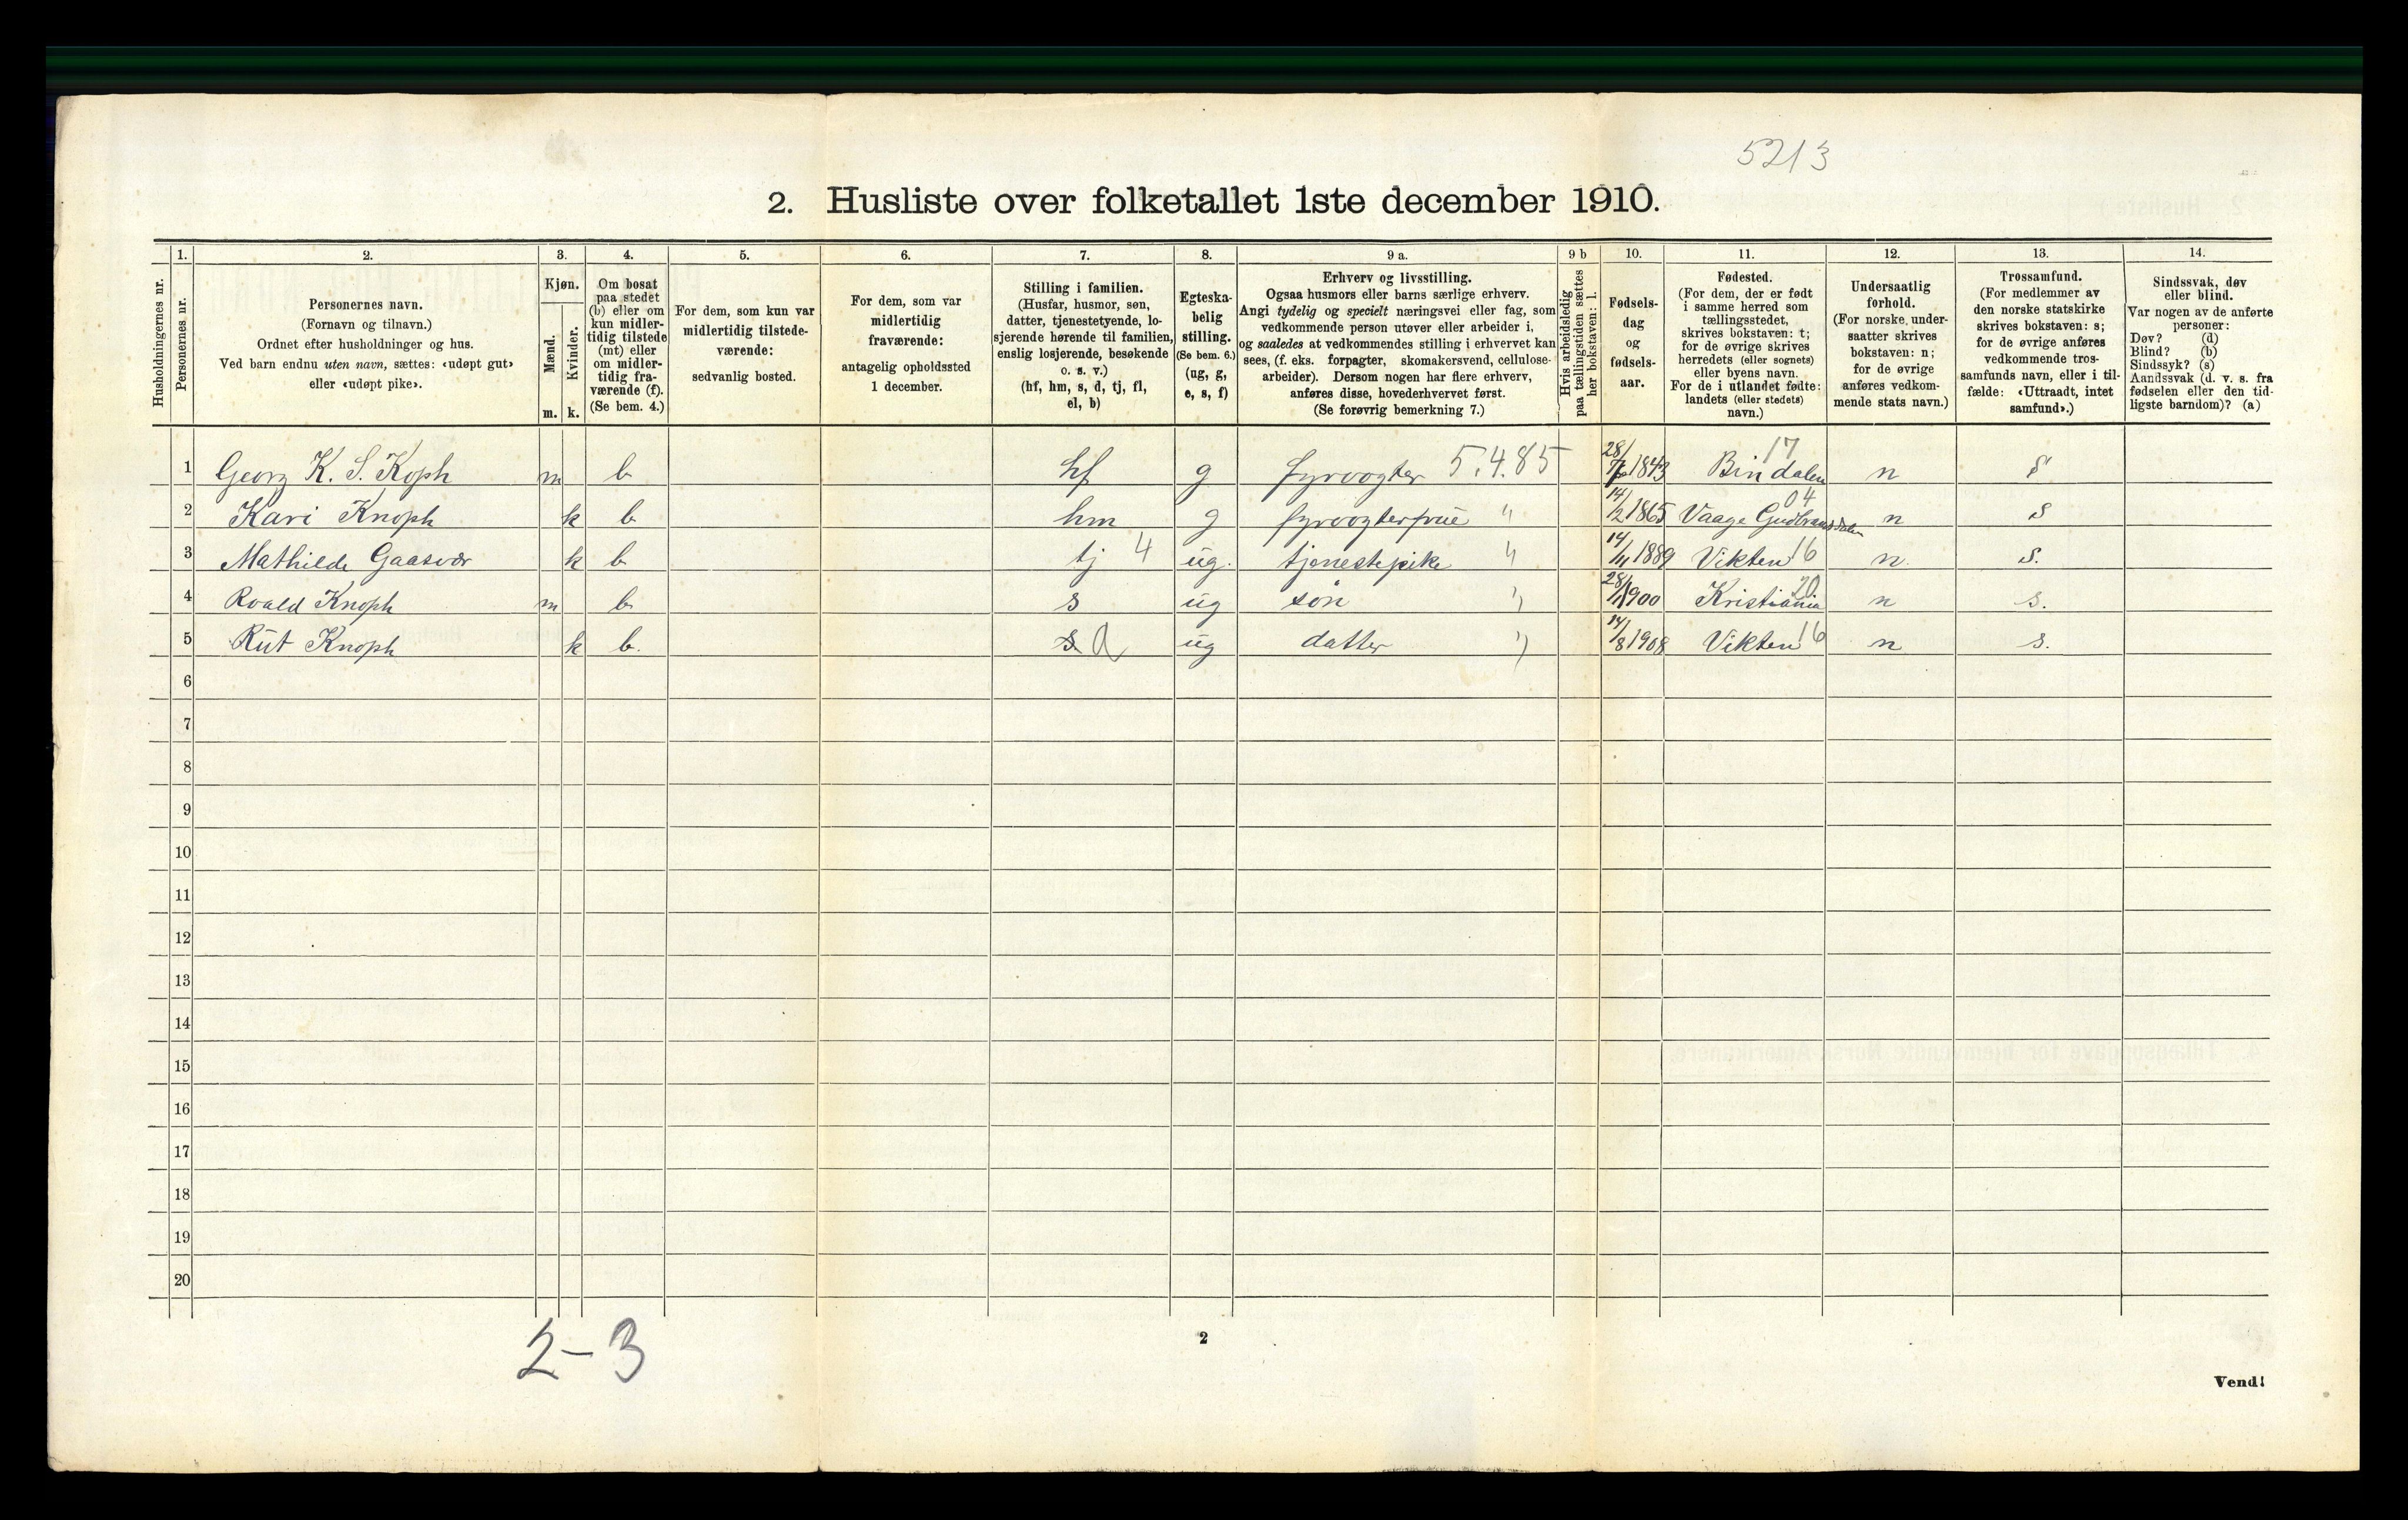 5213
2. Husliste over folketallet 1ste december 1910.
Husholdningernes nr.
1.
Personernes nr.
2.
Personernes navn.
(Fornavn og tilnavn.)
Ordnet efter husholdninger og hus.
Ved barn endnu uten navn, sættes: «udøpt gut»
eller «udøpt pike».
3.
Kjøn.
Mænd.
m.
Kvinder.
k.
4.
Om bosat
paa stedet
(b) eller om
kun midler-
tidig tilstede
(mt) eller
om midler-
tidig fra-
værende (f).
(Se bem. 4.)
5.
For dem, som kun var
midlertidig tilstede-
værende:
sedvanlig bosted.
6.
For dem, som var
midlertidig
fraværende:
antagelig opholdssted
1 december.
7.
Stilling i familien.
(Husfar, husmor, søn,
datter, tjenestetyende, lo-
sjerende hørende til familien,
enslig losjerende, besøkende
o. s. v.)
(hf, hm, s, d, tj, fl,
el, b)
8.
Egteska-
belig
stilling.
(Se bem. 6.)
(ug, g,
e, s, f)
9 a.
Erhverv og livsstilling.
Ogsaa husmors eller barns særlige erhverv.
Angi tydelig og specielt næringsvei eller fag, som
vedkommende person utøver eller arbeider i,
og saaledes at vedkommendes stilling i erhvervet kan
sees, (f. eks. forpagter, skomakersvend, cellulose-
arbeider). Dersom nogen har flere erhverv,
anføres disse, hovederhvervet først.
(Se forøvrig bemerkning 7.)
9 b
Hvis arbeidsledig
paa tællingstiden sættes
her bokstaven: l.
10.
Fødsels-
dag
og
fødsels-
aar.
11.
Fødested.
(For dem, der er født
i samme herred som
tællingsstedet,
skrives bokstaven: t;
for de øvrige skrives
herredets (eller sognets)
eller byens navn.
For de i utlandet fødte:
landets (eller stedets)
navn.)
12.
Undersaatlig
forhold.
(For norske under-
saatter skrives
bokstaven: n;
for de øvrige
anføres vedkom-
mende stats navn.)
13.
Trossamfund.
(For medlemmer av
den norske statskirke
skrives bokstaven: s;
for de øvrige anføres
vedkommende tros-
samfunds navn, eller i til-
fælde: «Uttraadt, intet
samfund».)
14.
Sindssvak, døv
eller blind.
Var nogen av de anførte
personer:
Døv? (d)
Blind? (b)
Sindssyk? (s)
Aandssvak (d. v. s. fra
fødselen eller den tid-
ligste barndom)? (a)
1 Georg K. S. Koph m b hf g fyrvogter 5.4.85 28/ 1843 Bindalen 17 n s
2 Kari Knoph k b hm g fyrvogterfrue " 14/2 1865 Vaage Gudbrandsdalen 04 n s
3 Mathilde Gaasvær k b tj 4 ug. tjenestepike " 14/11 1889 Vikten 16 n. s.
4 Roald Knoph m b s ug søn " 28/1 1900 Kristiania 20 n s.
5 Rut Knoph k b. s d ug datter " 14/8 1908 Vikten 16 n s.
6
7
8
9
10
11
12
13
14
15
16
17
18
19
20
2-3
2
Vend!